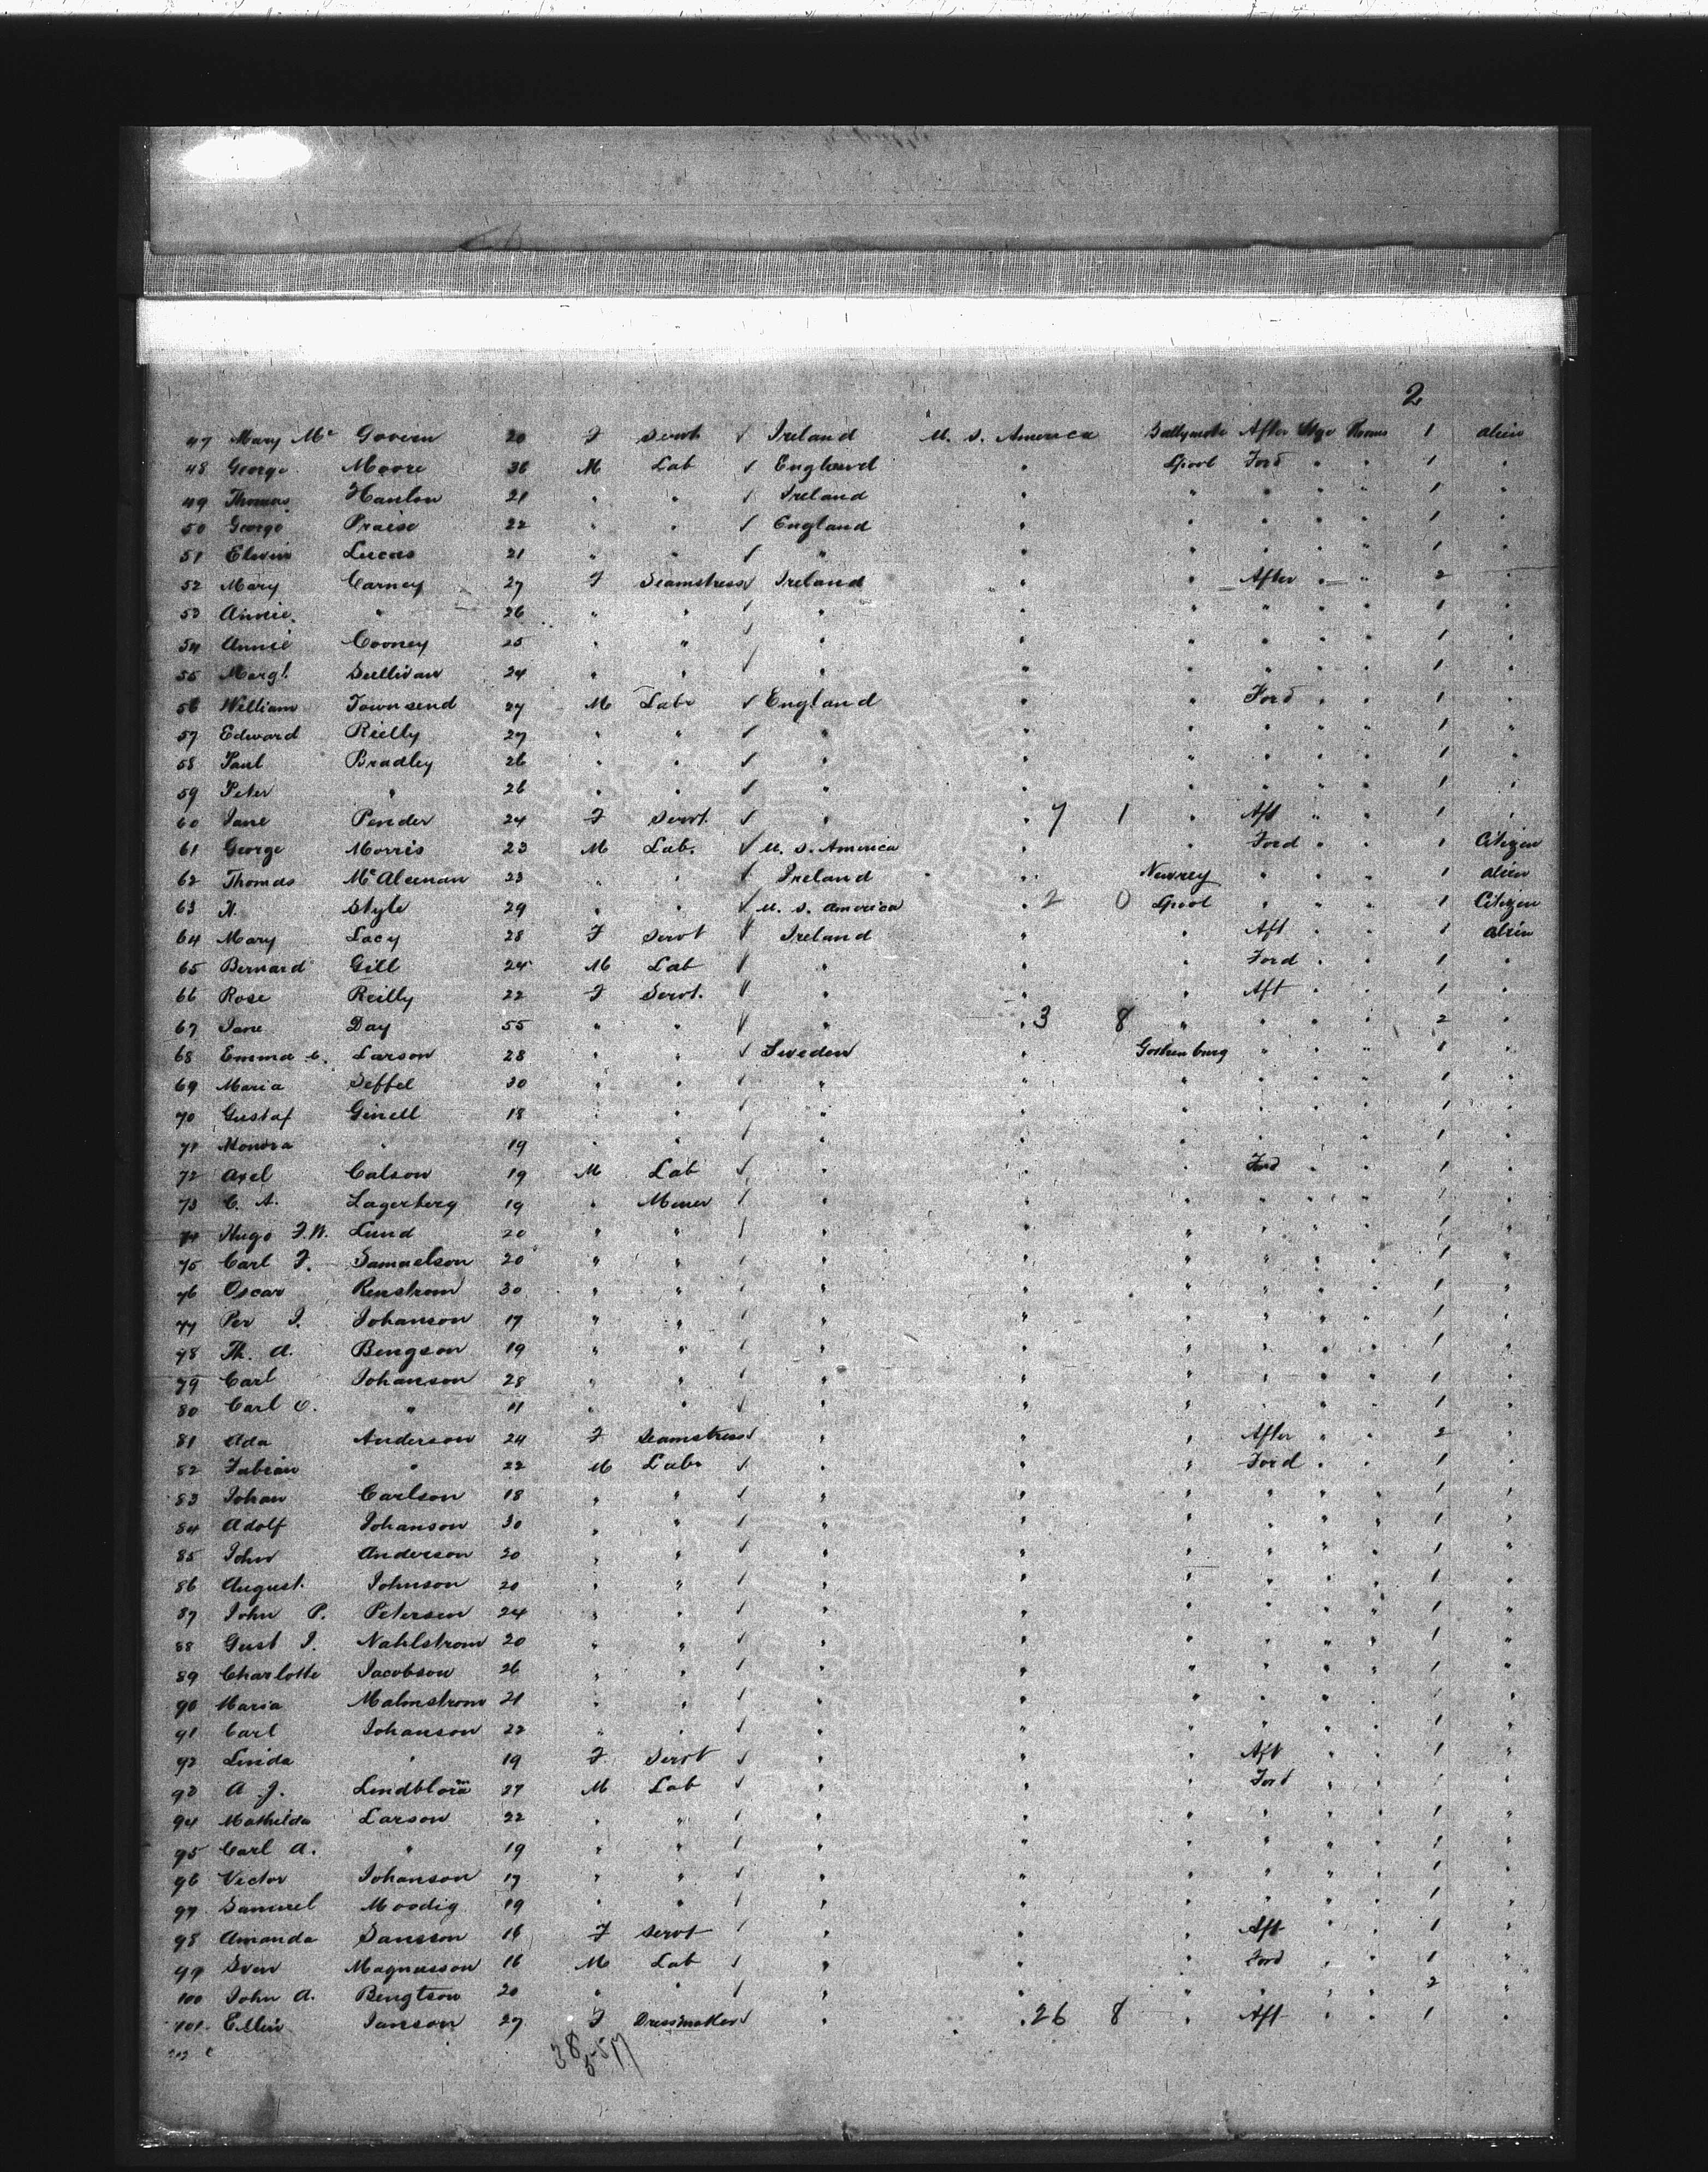 2
47 Mary Mc Govern 20 F Servt ✓ Ireland U. S. America Ballymote After Stge Roams 1 alien
48 George Moore 36 M Lab ✓ England " Lpool Ford " " 1 "
49 Thomas Hanlon 21 " " ✓ Ireland " " " " " 1 "
50 George Praise 22 " " ✓ England " " " " " 1 "
51 Elwin Lucas 21 " " ✓ " " " " " " 1 "
52 Mary Carney 27 F Seamstress ✓ Ireland " " After " " 2 "
53 Annie " 26 " " ✓ " " " " " " 1 "
54 Annie Cooney 25 " " ✓ " " " " " " 1 "
55 Margt. Sullivan 24 " " ✓ " " " " " " 1 "
56 William Townsend 27 M Labr ✓ England " " Ford " " 1 "
57 Edward Reilly 27 " " ✓ " " " " " " 1 "
58 Paul Bradley 26 " " ✓ " " " " " " 1 "
59 Peter " 26 " " ✓ " " " " " " 1 "
60 Jane Pender 24 F Servt. ✓ " " 7 1 " Aft " " 1 "
61 George Morris 23 M Lab. ✓ U. S. America " " Ford " " 1 Citizen
62 Thomas McAleenan 23 " " ✓ Ireland " Newrey " " " 1 alien
63 Style 29 " " ✓ U. S. America " 2 0 Lpool " " " 1 Citizen
64 Mary Lacy 28 F Servt ✓ Ireland " " Aft " " 1 alien
65 Bernard Gill 24 M Lab ✓ " " " Ford " " 1 "
66 Rose Reilly 22 F Servt. ✓ " " " Aft " " 1 "
67 Jane Day 55 " " ✓ " " 3 8 " " " " 2 "
68 Emma C. Larson 28 " " ✓ Sweden " Gothenburg " " " 1 "
69 Maria Seffel 30 " " ✓ " " " " " " 1 "
70 Gustaf Ginell 18 " " ✓ " " " " " " 1 "
71 " 19 " " ✓ " " " " " " 1 "
72 Axel Calson 19 M Lab ✓ " " " Ford " " 1 "
73 C. A. Lagerberg 19 " Miner ✓ " " " " " " 1 "
74 Hugo F.W. Lund 20 " " ✓ " " " " " " 1 "
75 Carl F. Samuelson 20 " " ✓ " " " " " " 1 "
76 Oscar Renstrom 30 " " ✓ " " " " " " 1 "
77 Per J. Johanson 17 " " ✓ " " " " " " 1 "
78 Th. A. Bengson 19 " " ✓ " " " " " " 1 "
79 Carl Johanson 28 " " ✓ " " " " " " 1 "
80 Carl O. " 11 " " ✓ " " " " " " 1 "
81 Ada Anderson 24 F Seamstress ✓ " " " After " " 2 "
82 Fabian " 22 M Labr ✓ " " " Ford " " 1 "
83 Johan Carlson 18 " " ✓ " " " " " " 1 "
84 Adolf Johanson 30 " " ✓ " " " " " " 1 "
85 John Anderson 20 " " ✓ " " " " " " 1 "
86 August. Johnson 20 " " ✓ " " " " " " 1 "
87 John P. Petersen 24 " " ✓ " " " " " " 1 "
88 Gust J. Nahlstrom 20 " " ✓ " " " " " " 1 "
89 Charlotte Jacobson 26 " " ✓ " " " " " " 1 "
90 Maria Malmstrom 21 " " ✓ " " " " " " 1 "
91 Carl Johanson 22 " " ✓ " " " " " " 1 "
92 Linda " 19 F Servt ✓ " " " Aft " " 1 "
93 A. J. Lindblom 27 M Lab ✓ " " " Ford " " 1 "
94 Mathilda Larson 22 " " ✓ " " " " " " 1 "
95 Carl A. " 19 " " ✓ " " " " " " 1 "
96 Victor Johanson 17 " " ✓ " " " " " " 1 "
97 Samuel Moodig 19 " " ✓ " " " " " " 1 "
98 Amanda Sansson 16 F Servt ✓ " " " Aft " " 1 "
99 Sven Magnusson 16 M Lab ✓ " " " Ford " " 1 "
100 John A. Bengtson 20 " " ✓ " " " " " " 2 "
101 Ellin Janson 27 F Dressmaker ✓ " " 26 8 " Aft " " 1 "
38